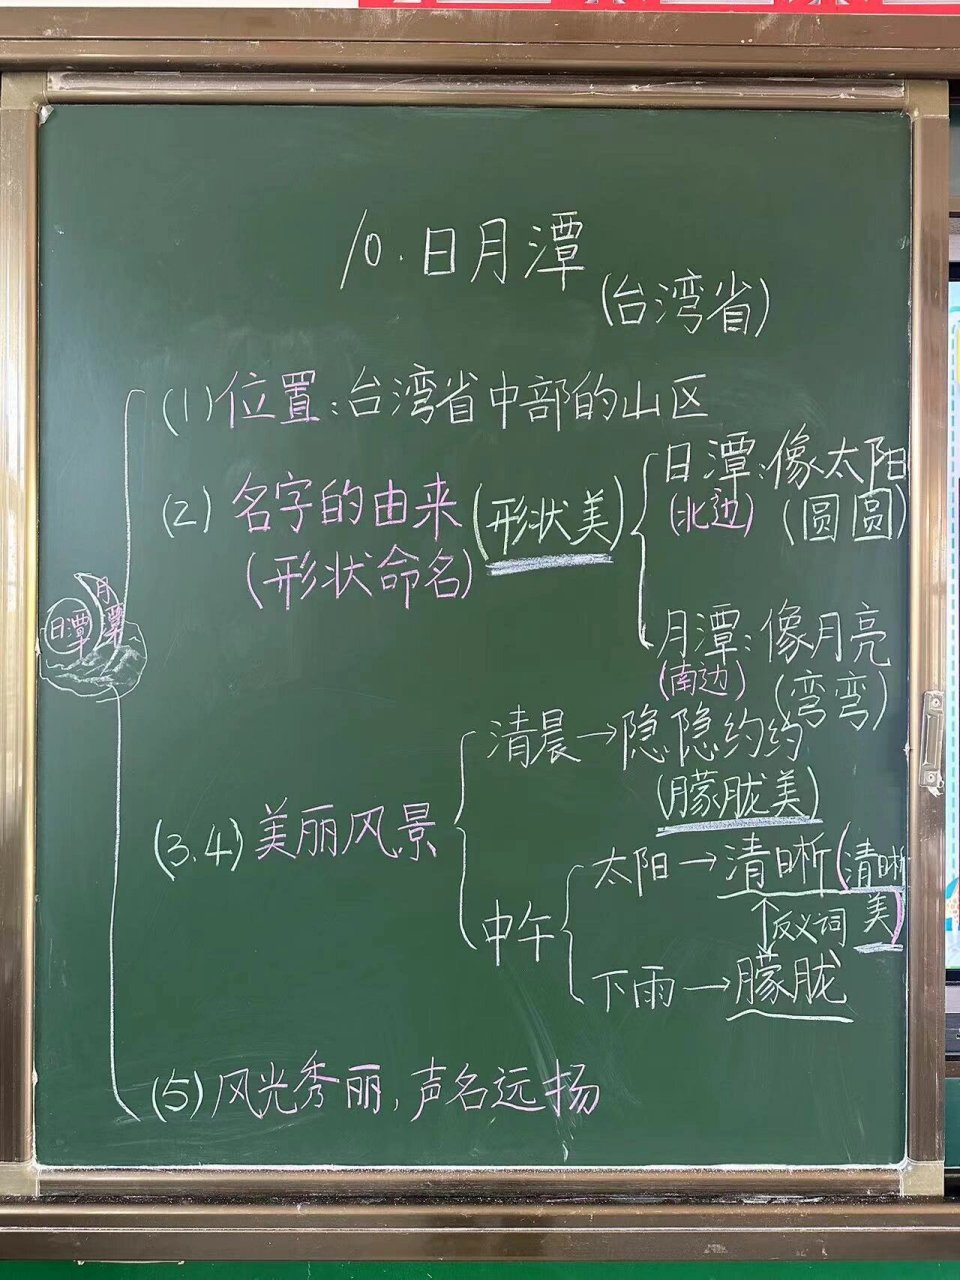 10.日月潭
(台湾省)
(1)位置:台湾省中部的山区
(2)名字的由来(形状美)
(形状命名)
日潭:像太阳
(北边)(圆圆)
月潭:像月亮
(南边)(弯弯)
日潭
月潭
(3.4)美丽风景
清晨→隐隐约约
(朦胧美)
中午
太阳→清晰(清晰
美)
↑反义词
下雨→朦胧
(5)风光秀丽,声名远扬